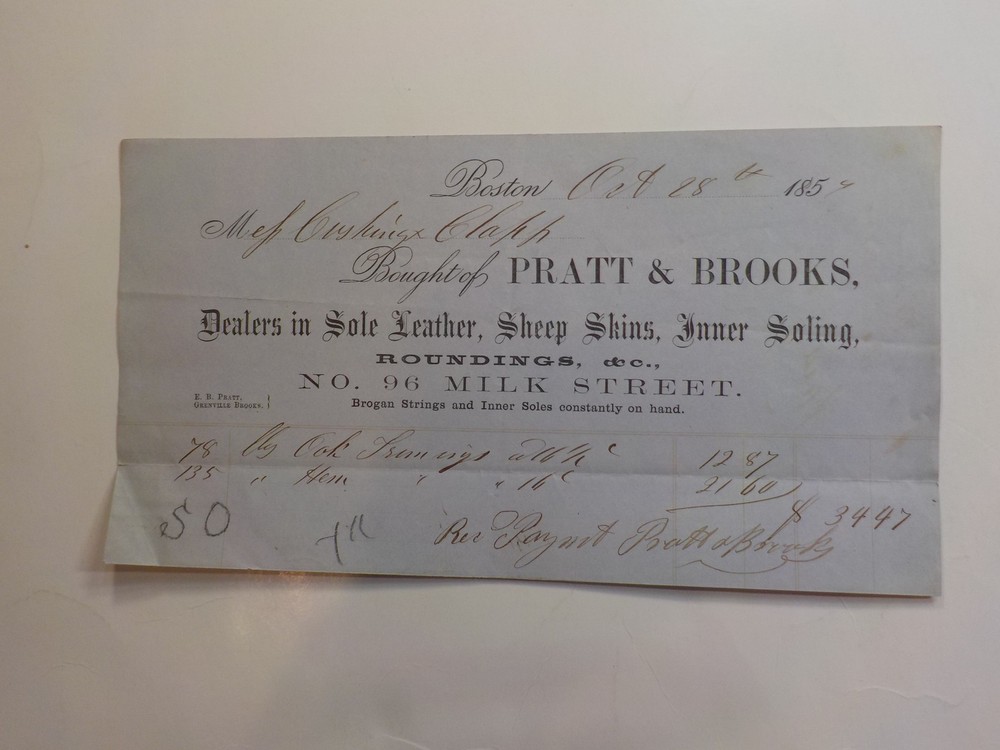 Boston Oct 28th 185
Mess Cushing & Clapp
Bought of PRATT & BROOKS,
Dealers in Sole Leather, Sheep Skins, Inner Soling,
ROUNDINGS, &c.,
NO. 96 MILK STREET.
E. B. PRATT,
GRENVILLE BROOKS.
Brogan Strings and Inner Soles constantly on hand.
78 lbs Oak Trimings at 16½ c 12 87
135 " Hem " " 16 c 21 60
$ 34 47
Rec Paymt Pratt & Brooks
50